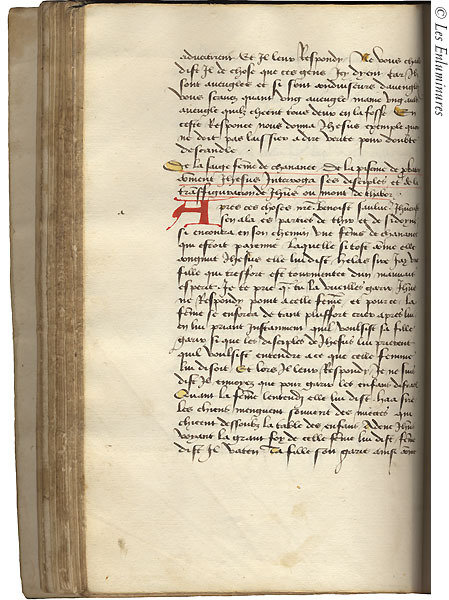 aducatrient Et Il leur Respondy Ne vous chaille
dist Il de chose que ces gens Icy dyent Car Ilz
sont aveugles et si sont conduiseurs daveugles
vous scavez quant ung aveugle maine ung autre
aveugle quilz cheent tous deux en la fosse En
ceste Responce nous donna Ihesus exemple que
ne doit pas laissier adire verite pour doubte
descandle
De la saige feme de chananee De la piscine de
coment Ihesus Interroga ses disciples et de la
transfiguracion de Ihus ou mont de thabor
Apres ces choses me benoist sauluer Ihucrist
sen ala es parties de thir et de sidoine
sa encontra en son chemin une feme de chananee
qui estoit paienne Laquelle si tost come elle
congnut Ihesus elle luy dist helas sire Jay une
fille qui tresfort est tourmentee dun mauvait
esperit Je te prie q tu la vueilles garir Ihus
ne Respondy point a celle feme et pour ce la
feme se enforca de tant plus fort crier apres luy
en luy priant Instanment quil voulsist sa fille
garir si que les disciples de Ihesus luy prierent
quil voulsist entendre a ce que celle femme
luy disoit Et lors Il leur Respondy Je ne suis
dist Il envoyez que pour garir les enfans disrael
Quant la feme lentendy elle luy dist haa sire
les chiens menguent souvent des miettes qui
chieent dessoubz la table des enfans Adonc Ihus
voyant la grant foy de celle feme luy dist feme
dist Il vaten Ta fille soit garie ainsi come
© Les Enluminures